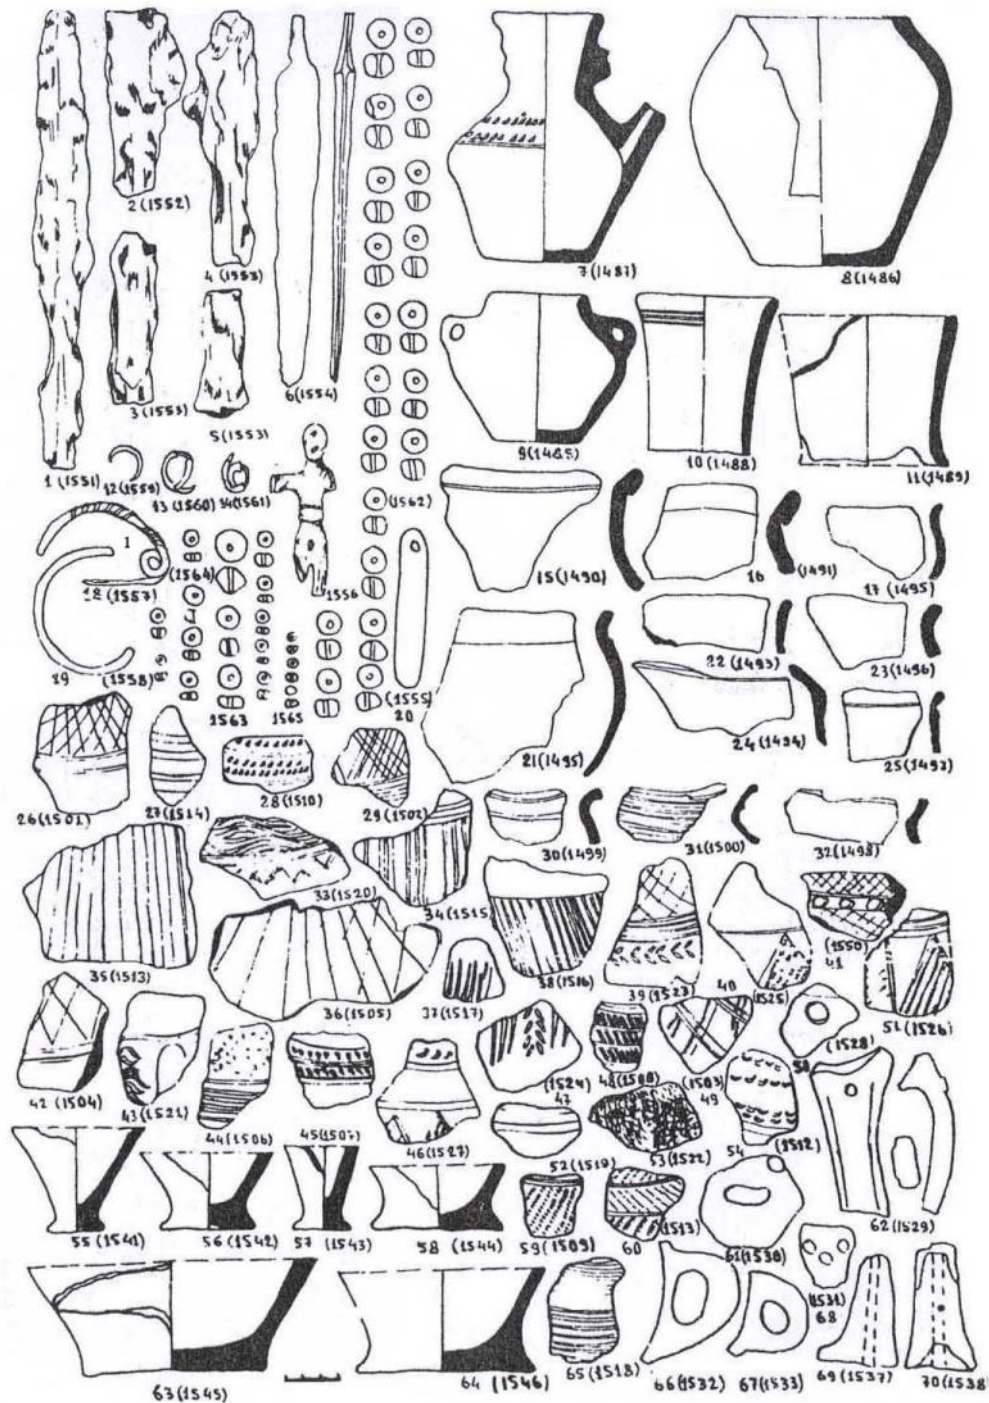 1 (1551)
2 (1552)
3 (1553)
4 (1553)
5 (1553)
6 (1554)
7 (1487)
8 (1486)
9 (1485)
10 (1488)
11 (1489)
12 (1559)
13 (1560)
14 (1561)
(1562)
15 (1490)
16 (1491)
17 (1495)
1
18 (1557)
(1564)
1556
19 (1558)
1563
1565
(1555)
20
21 (1495)
22 (1493)
23 (1496)
24 (1494)
25 (1497)
26 (1501)
27 (1514)
28 (1510)
29 (1502)
30 (1499)
31 (1500)
32 (1498)
33 (1520)
34 (1515)
35 (1513)
36 (1505)
37 (1517)
38 (1516)
39 (1523)
40 1525
(1550)
41
42 (1504)
43 (1521)
44 (1506)
45 (1507)
46 (1527)
(1524)
47
48 (1508)
(1503)
49
50 (1528)
51 (1526)
52 (1519)
53 (1522)
54 (1512)
55 (1541)
56 (1542)
57 (1543)
58 (1544)
59 (1509)
60 (1513)
61 (1530)
62 (1529)
63 (1545)
64 (1546)
65 (1518)
66 (1532)
67 (1533)
(1531)
68
69 (1537)
70 (1538)